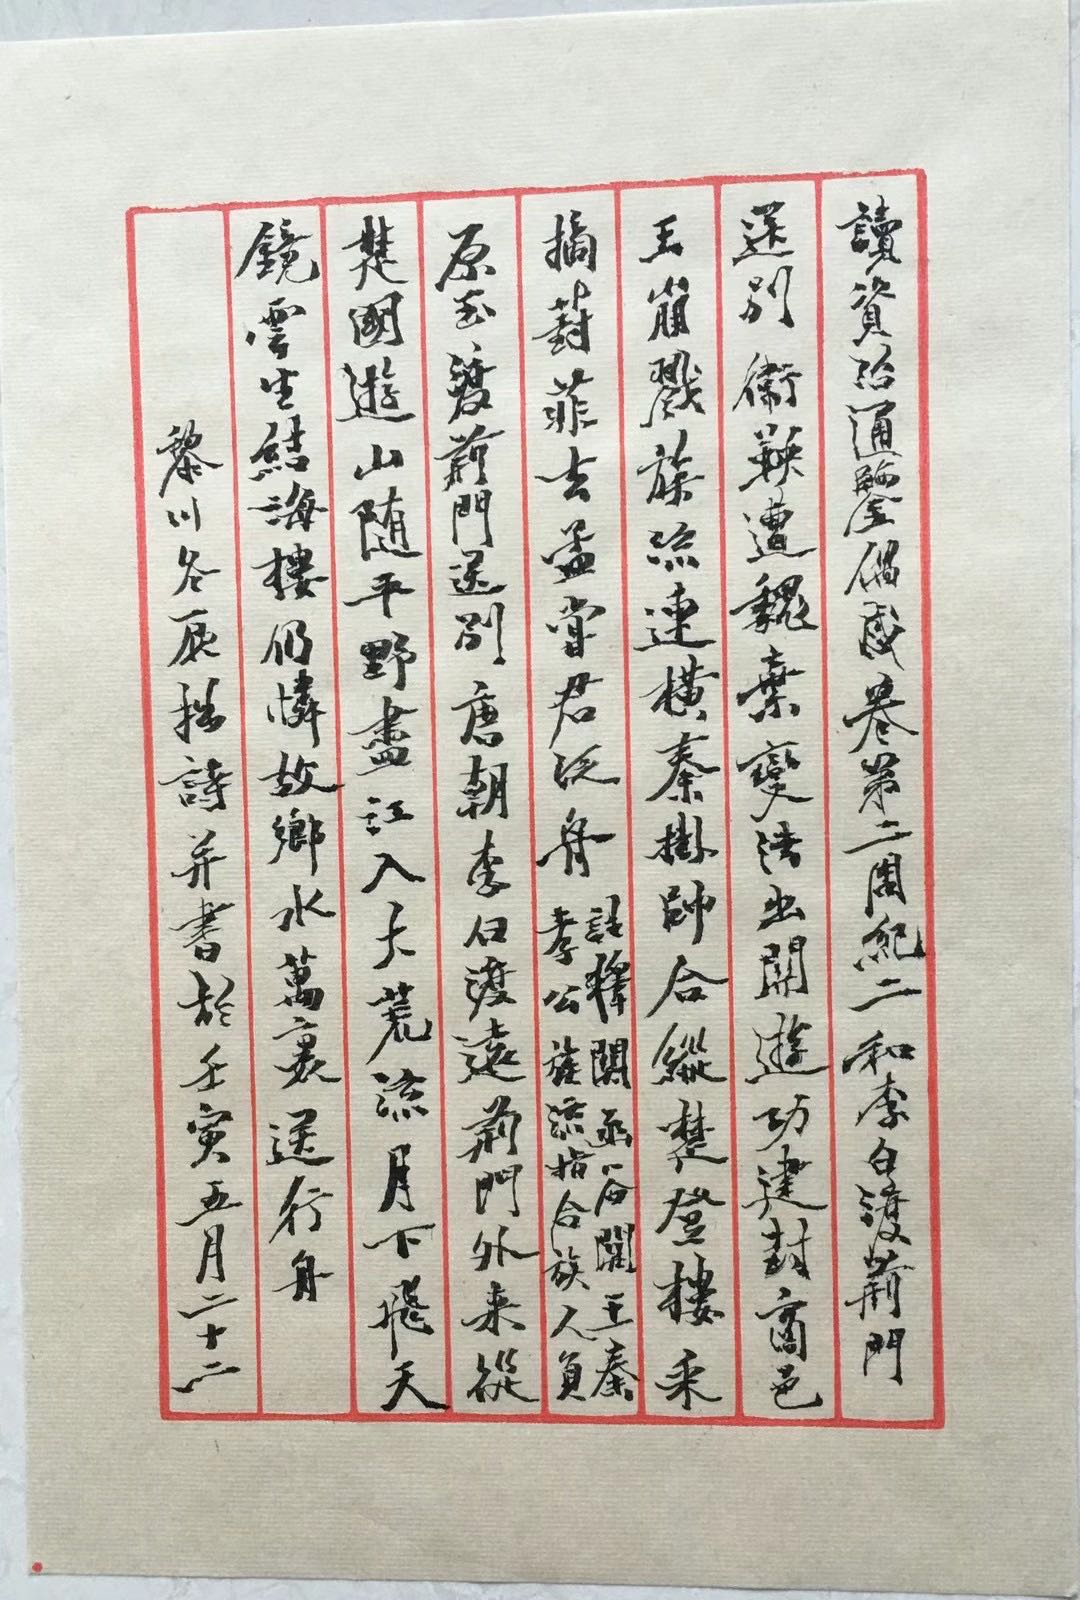 讀資治通鑒偶感卷第二周紀二和李白渡荊門
送别衛鞅遭魏棄變法出關遊功建封商邑
王崩戮族流連橫秦掛帥合縱楚登樓采
摘葑菲去孟嘗君泛舟
註釋關函谷關王秦
孝公族流指合族人員
原玉渡荊門送别唐朝李白渡遠荊門外来從
楚國遊山随平野盡江入大荒流月下飛天
鏡雲生結海樓仍憐故鄉水萬裏送行舟
黎川拙詩并書於壬寅五月二十二